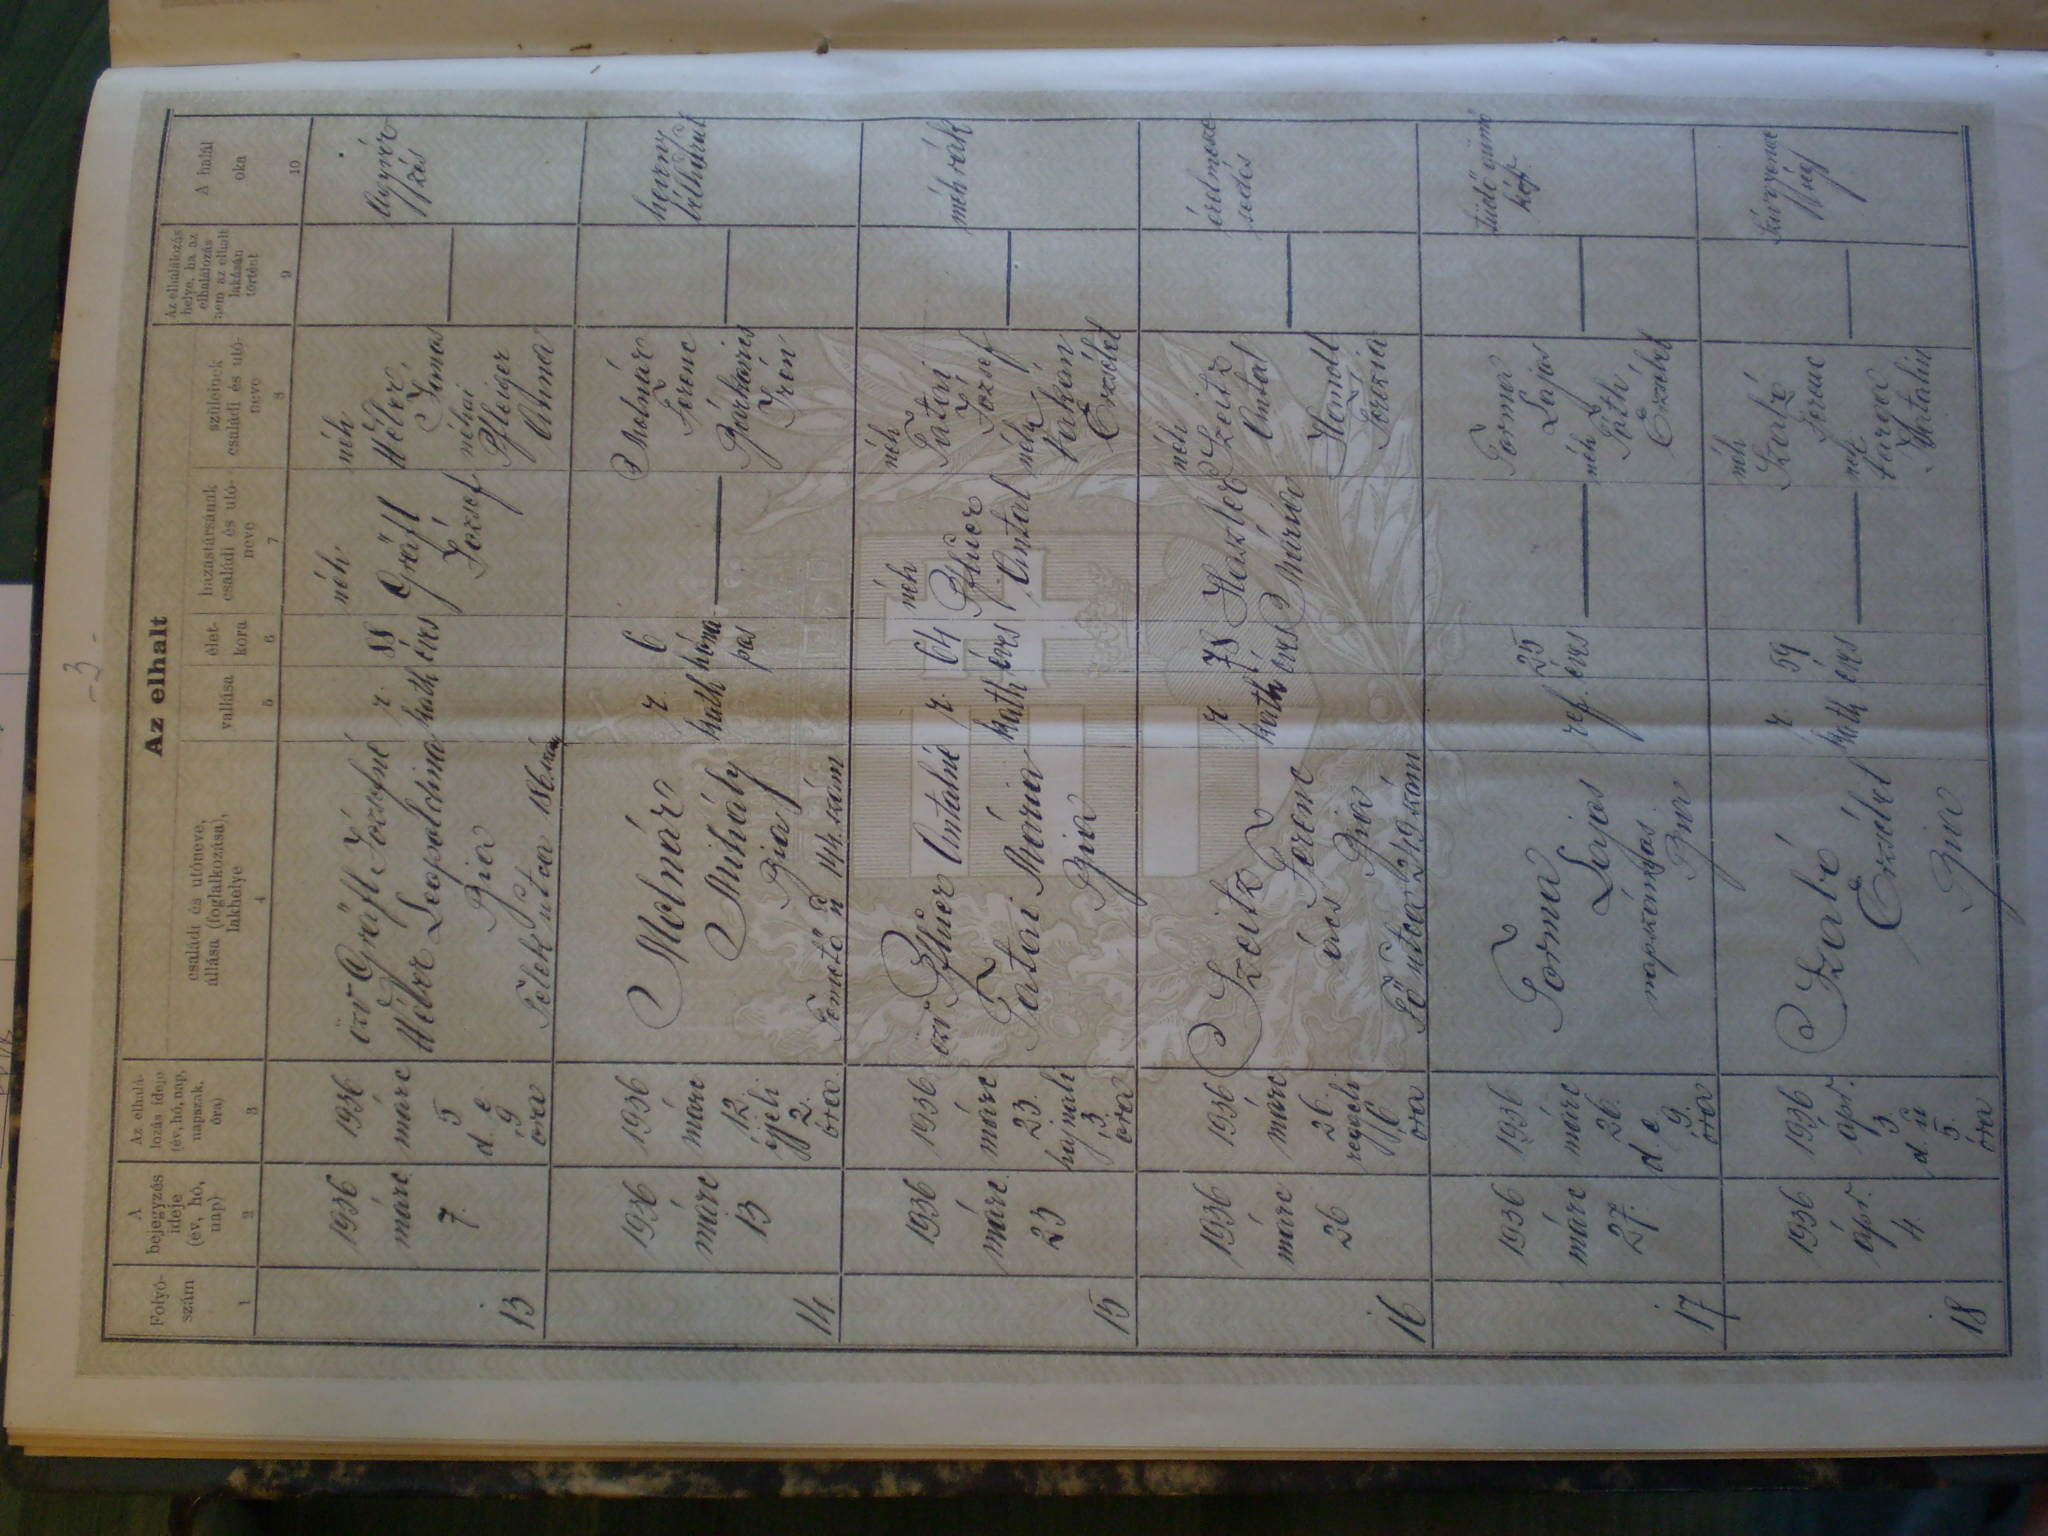 - 3 -
Az elhalt
Folyó-
szám
A
bejegyzés
ideje
(év, hó,
nap)
Az elhalá-
lozás ideje
(év, hó, nap,
napszak,
óra)
családi és utóneve,
állása (foglalkozása),
lakhelye
vallása
élet-
kora
házastársának
családi és utó-
neve
szüleinek
családi és utó-
neve
Az elhalálozás
helye, ha az
elhalálozás
nem az elhalt
lakásán
történt
A halál
oka
1
2
3
4
5
6
7
8
9
10
13
1936
márc
7.
1936
márc
5
d. e.
9
óra
özv Gräfl Józsefné
Wéber Leopoldina
Bia
Telek utca 186.
r.
kath
88
éves
néh
Gräfl
József
néh
Wéber
Tamás
néhai
Pfleiger
Anna
Agyvér
zés
14.
1936
márc
13
1936
márc
12.
éjjeli
2.
óra
Molnár
Mihály
Bia
Temető u 144. szám
r.
kath
6
hóna
pos
Molnár
Ferenc
Bárkányi
Irén
heveny
bélhurut
15
1936
márc.
23
1936
márc
23.
hajnali
3
óra
özv Pfluer Antalné
Tatai Mária
Bia
r.
kath
64
éves
néh
Pfluer
Antal
néh
Tatai
József
néh
Erzsébet
méhrák
16
1936
márc
26
1936
márc
26.
reggeli
6
óra
Szeitz
Ferenc
ács Bia
Fő utca 249. szám
r.
kath
78
éves
Haszler
Mária
néh
Szeitz
Antal
Terézia
érelmesze
sedés
17
1936
márc
27.
1936
márc
26.
d. e.
9.
óra
Torma
Lajos
napszámos
Bia
ref.
25
éves
Torma
Lajos
néh
Páth
Erzsébet
tüdőgümő
kór
18
1936
ápr.
4.
1936
ápr.
3
d. u
5.
óra
Szabó
Erzsébet
Bia
r.
kath
59
éves
néh
Szabó
Ferenc
néh
Varga
Katalin